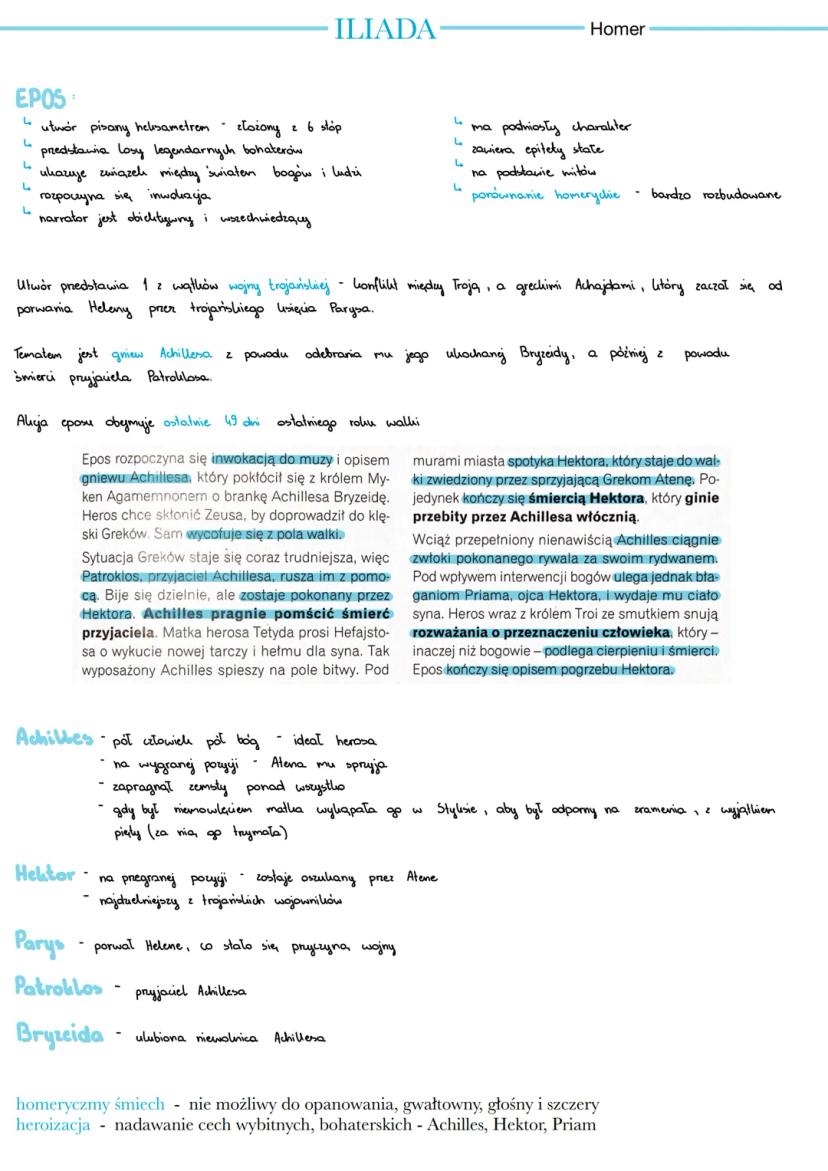 ILIADA Homer
EPOS:
↳ utwór pisany heksametrem - złożony z 6 stóp
↳ przedstawia losy legendarnych bohaterów
↳ ukazuje związek między światem bogów i ludzi
↳ rozpoczyna się inwokacją
↳ narrator jest obiektywny i wszechwiedzący
↳ ma podniosły charakter
↳ zawiera epitety stałe
↳ na podstawie mitów
↳ porównanie homeryckie - bardzo rozbudowane
Utwór przedstawia 1 z wątków wojny trojańskiej - konflikt między Troją, a greckimi Achajdami, który zaczął się od
porwania Heleny przez trojańskiego księcia Parysa.
Tematem jest gniew Achillesa z powodu odebrania mu jego ukochanej Bryzeidy, a później z powodu
śmierci przyjaciela Patroklosa.
Akcja eposu obejmuje ostatnie 49 dni ostatniego roku walki
Epos rozpoczyna się inwokacją do muzy i opisem
gniewu Achillesa, który pokłócił się z królem My-
ken Agamemnonem o brankę Achillesa Bryzeidę.
Heros chce skłonić Zeusa, by doprowadził do klę-
ski Greków. Sam wycofuje się z pola walki.
Sytuacja Greków staje się coraz trudniejsza, więc
Patroklos, przyjaciel Achillesa, rusza im z pomo-
cą. Bije się dzielnie, ale zostaje pokonany przez
Hektora. Achilles pragnie pomścić śmierć
przyjaciela. Matka herosa Tetyda prosi Hefajsto-
sa o wykucie nowej tarczy i hełmu dla syna. Tak
wyposażony Achilles spieszy na pole bitwy. Pod
murami miasta spotyka Hektora, który staje do wal-
ki zwiedziony przez sprzyjającą Grekom Atenę. Po-
jedynek kończy się śmiercią Hektora, który ginie
przebity przez Achillesa włócznią.
Wciąż przepełniony nienawiścią Achilles ciągnie
zwłoki pokonanego rywala za swoim rydwanem.
Pod wpływem interwencji bogów ulega jednak bła-
ganiom Priama, ojca Hektora, i wydaje mu ciało
syna. Heros wraz z królem Troi ze smutkiem snują
rozważania o przeznaczeniu człowieka, który –
inaczej niż bogowie – podlega cierpieniu i śmierci.
Epos kończy się opisem pogrzebu Hektora.
Achilles - pół człowiek pół bóg - ideał herosa
- na wygranej pozycji - Atena mu sprzyja
- zapragnął zemsty ponad wszystko
- gdy był niemowlęciem matka wykąpała go w Styksie, aby był odporny na zranienia, z wyjątkiem
pięty (za nią go trzymała)
Hektor - na przegranej pozycji - zostaje oszukany przez Atenę
- najdzielniejszy z trojańskich wojowników
Parys - porwał Helenę, co stało się przyczyną wojny
Patroklos - przyjaciel Achillesa
Bryzeida - ulubiona niewolnica Achillesa
homeryczmy śmiech - nie możliwy do opanowania, gwałtowny, głośny i szczery
heroizacja - nadawanie cech wybitnych, bohaterskich - Achilles, Hektor, Priam